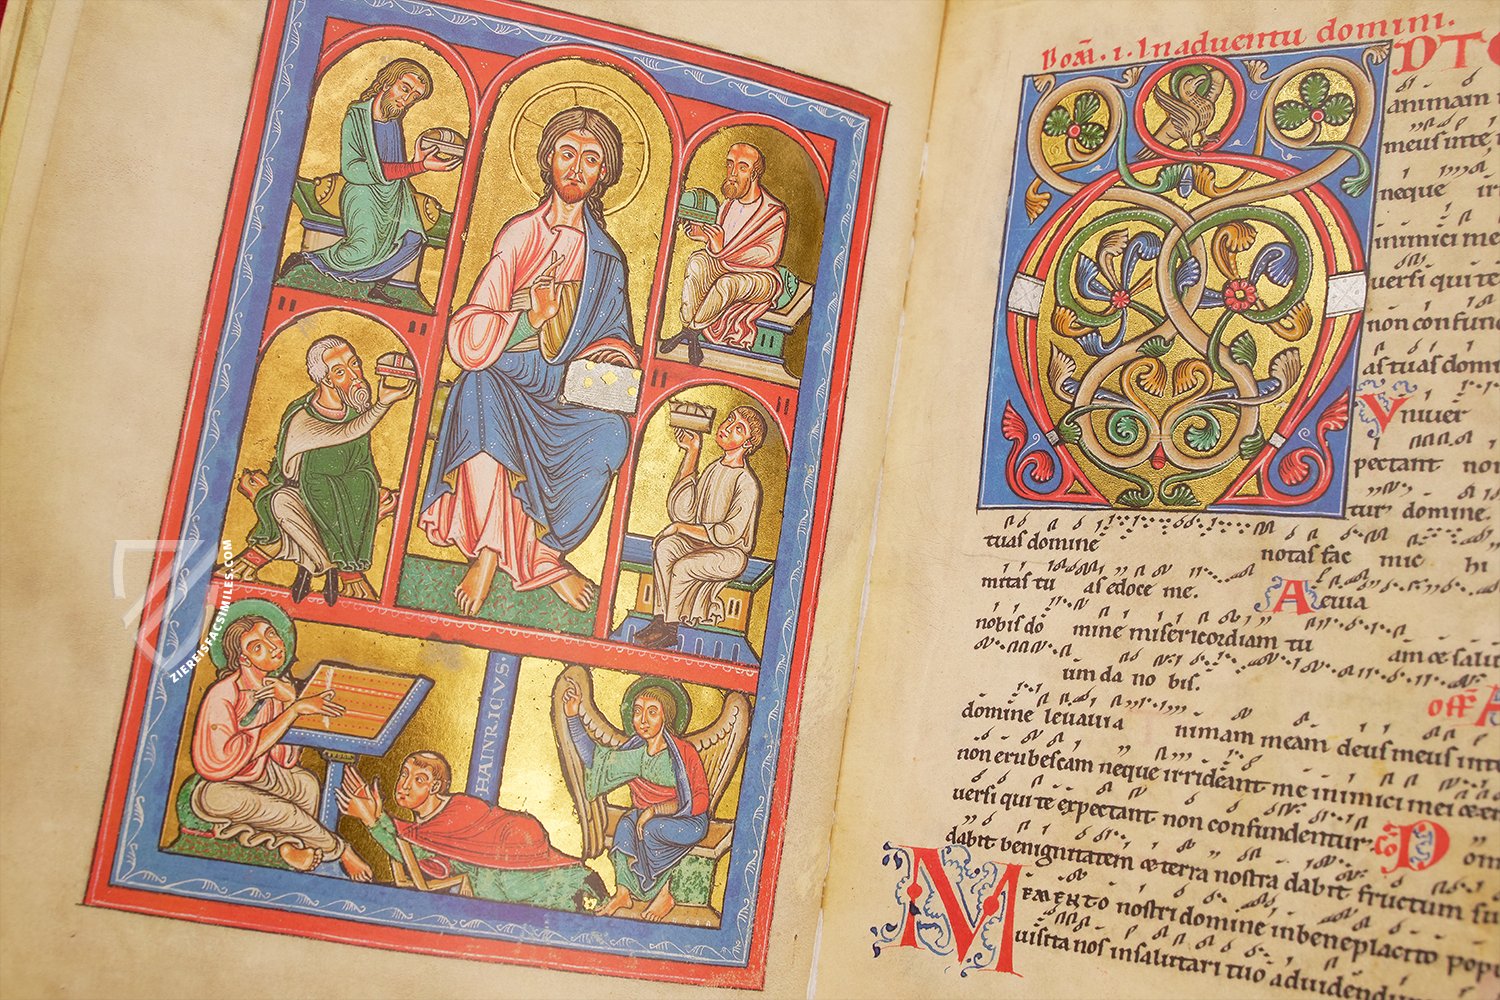 HAINRICVS.
ZIEREISFACSIMILES.COM
In aduentu domini.
animam
meus inte
neque irr
inimici me
uersi qui te
non confund
as tuas domi
Vniuer
pectant non
tur domine.
tuas domine notas fac mic hi
mitas tu as edoce me. A
nobis dō mine misericordiam tu am
um da no bis.
domine leuaui a nimam meam deus meus inte
non erubescam neque irrideant me inimici mei
uersi qui te expectant non confundentur. D
dabit benignitatem & terra nostra dabit fructum su
MEMENTO nostri domine in beneplacito popu
uisita nos in salutari tuo ad uidendu